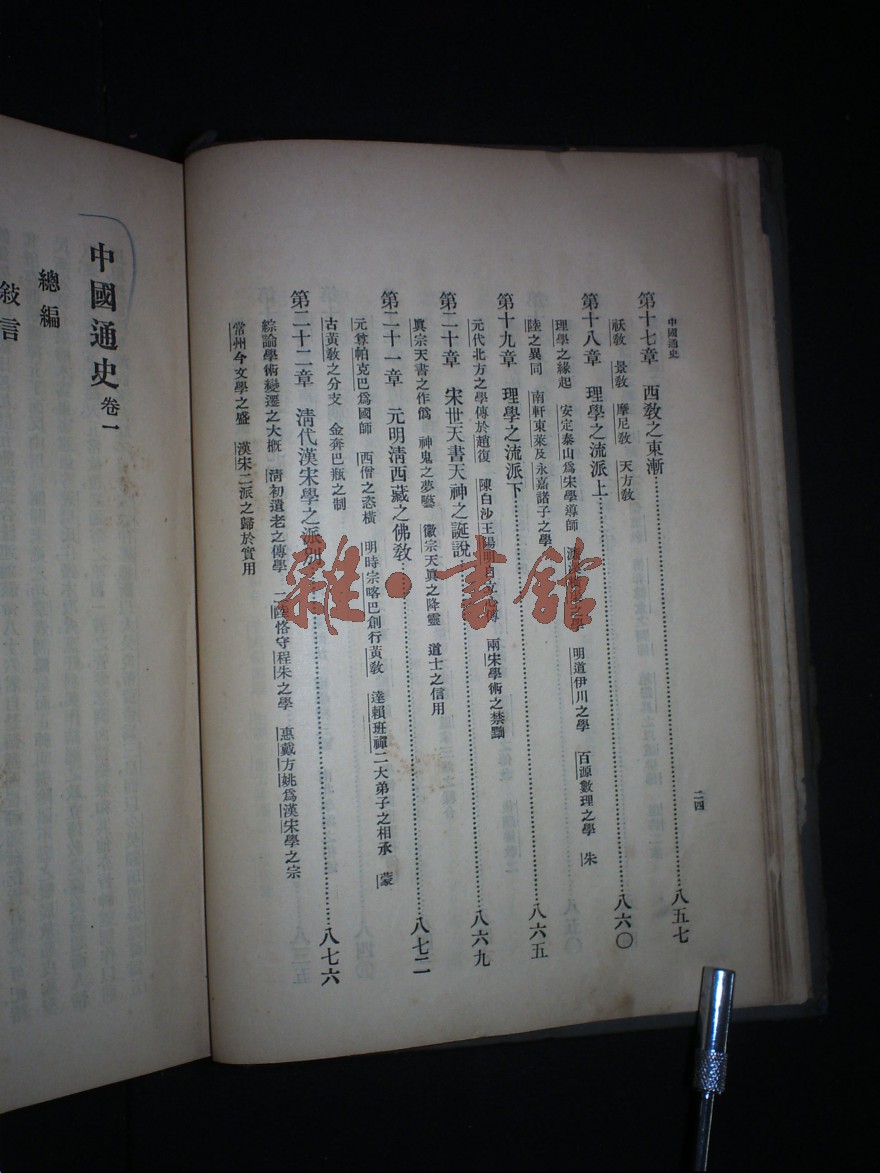 中國通史
二四
第十七章 西敎之東漸……八五七
祅敎 景敎 摩尼敎 天方敎
第十八章 理學之流派上……八六〇
理學之緣起 安定泰山爲宋學導師 之學 明道伊川之學 百源數理之學 朱
陸之異同 南軒東萊及永嘉諸子之學
第十九章 理學之流派下……八六五
元代北方之學傳於趙復 陳白沙王陽明 兩宋學術之禁黜
第二十章 宋世天書天神之誕說……八六九
眞宗天書之作僞 神鬼之夢囈 徽宗天眞之降靈 道士之信用
第二十一章 元明淸西藏之佛敎……八七二
元尊帕克巴爲國師 西僧之恣橫 明時宗喀巴創行黃敎 達賴班禪二大弟子之相承 蒙
古黃敎之分支 金奔巴瓶之制
第二十二章 淸代漢宋學之派別……八七六
綜論學術變遷之大槪 淸初遺老之傳學 二陸恪守程朱之學 惠戴方姚爲漢宋學之宗
常州今文學之盛 漢宋二派之歸於實用
中國通史 卷一
總編
敍言
雜·書館